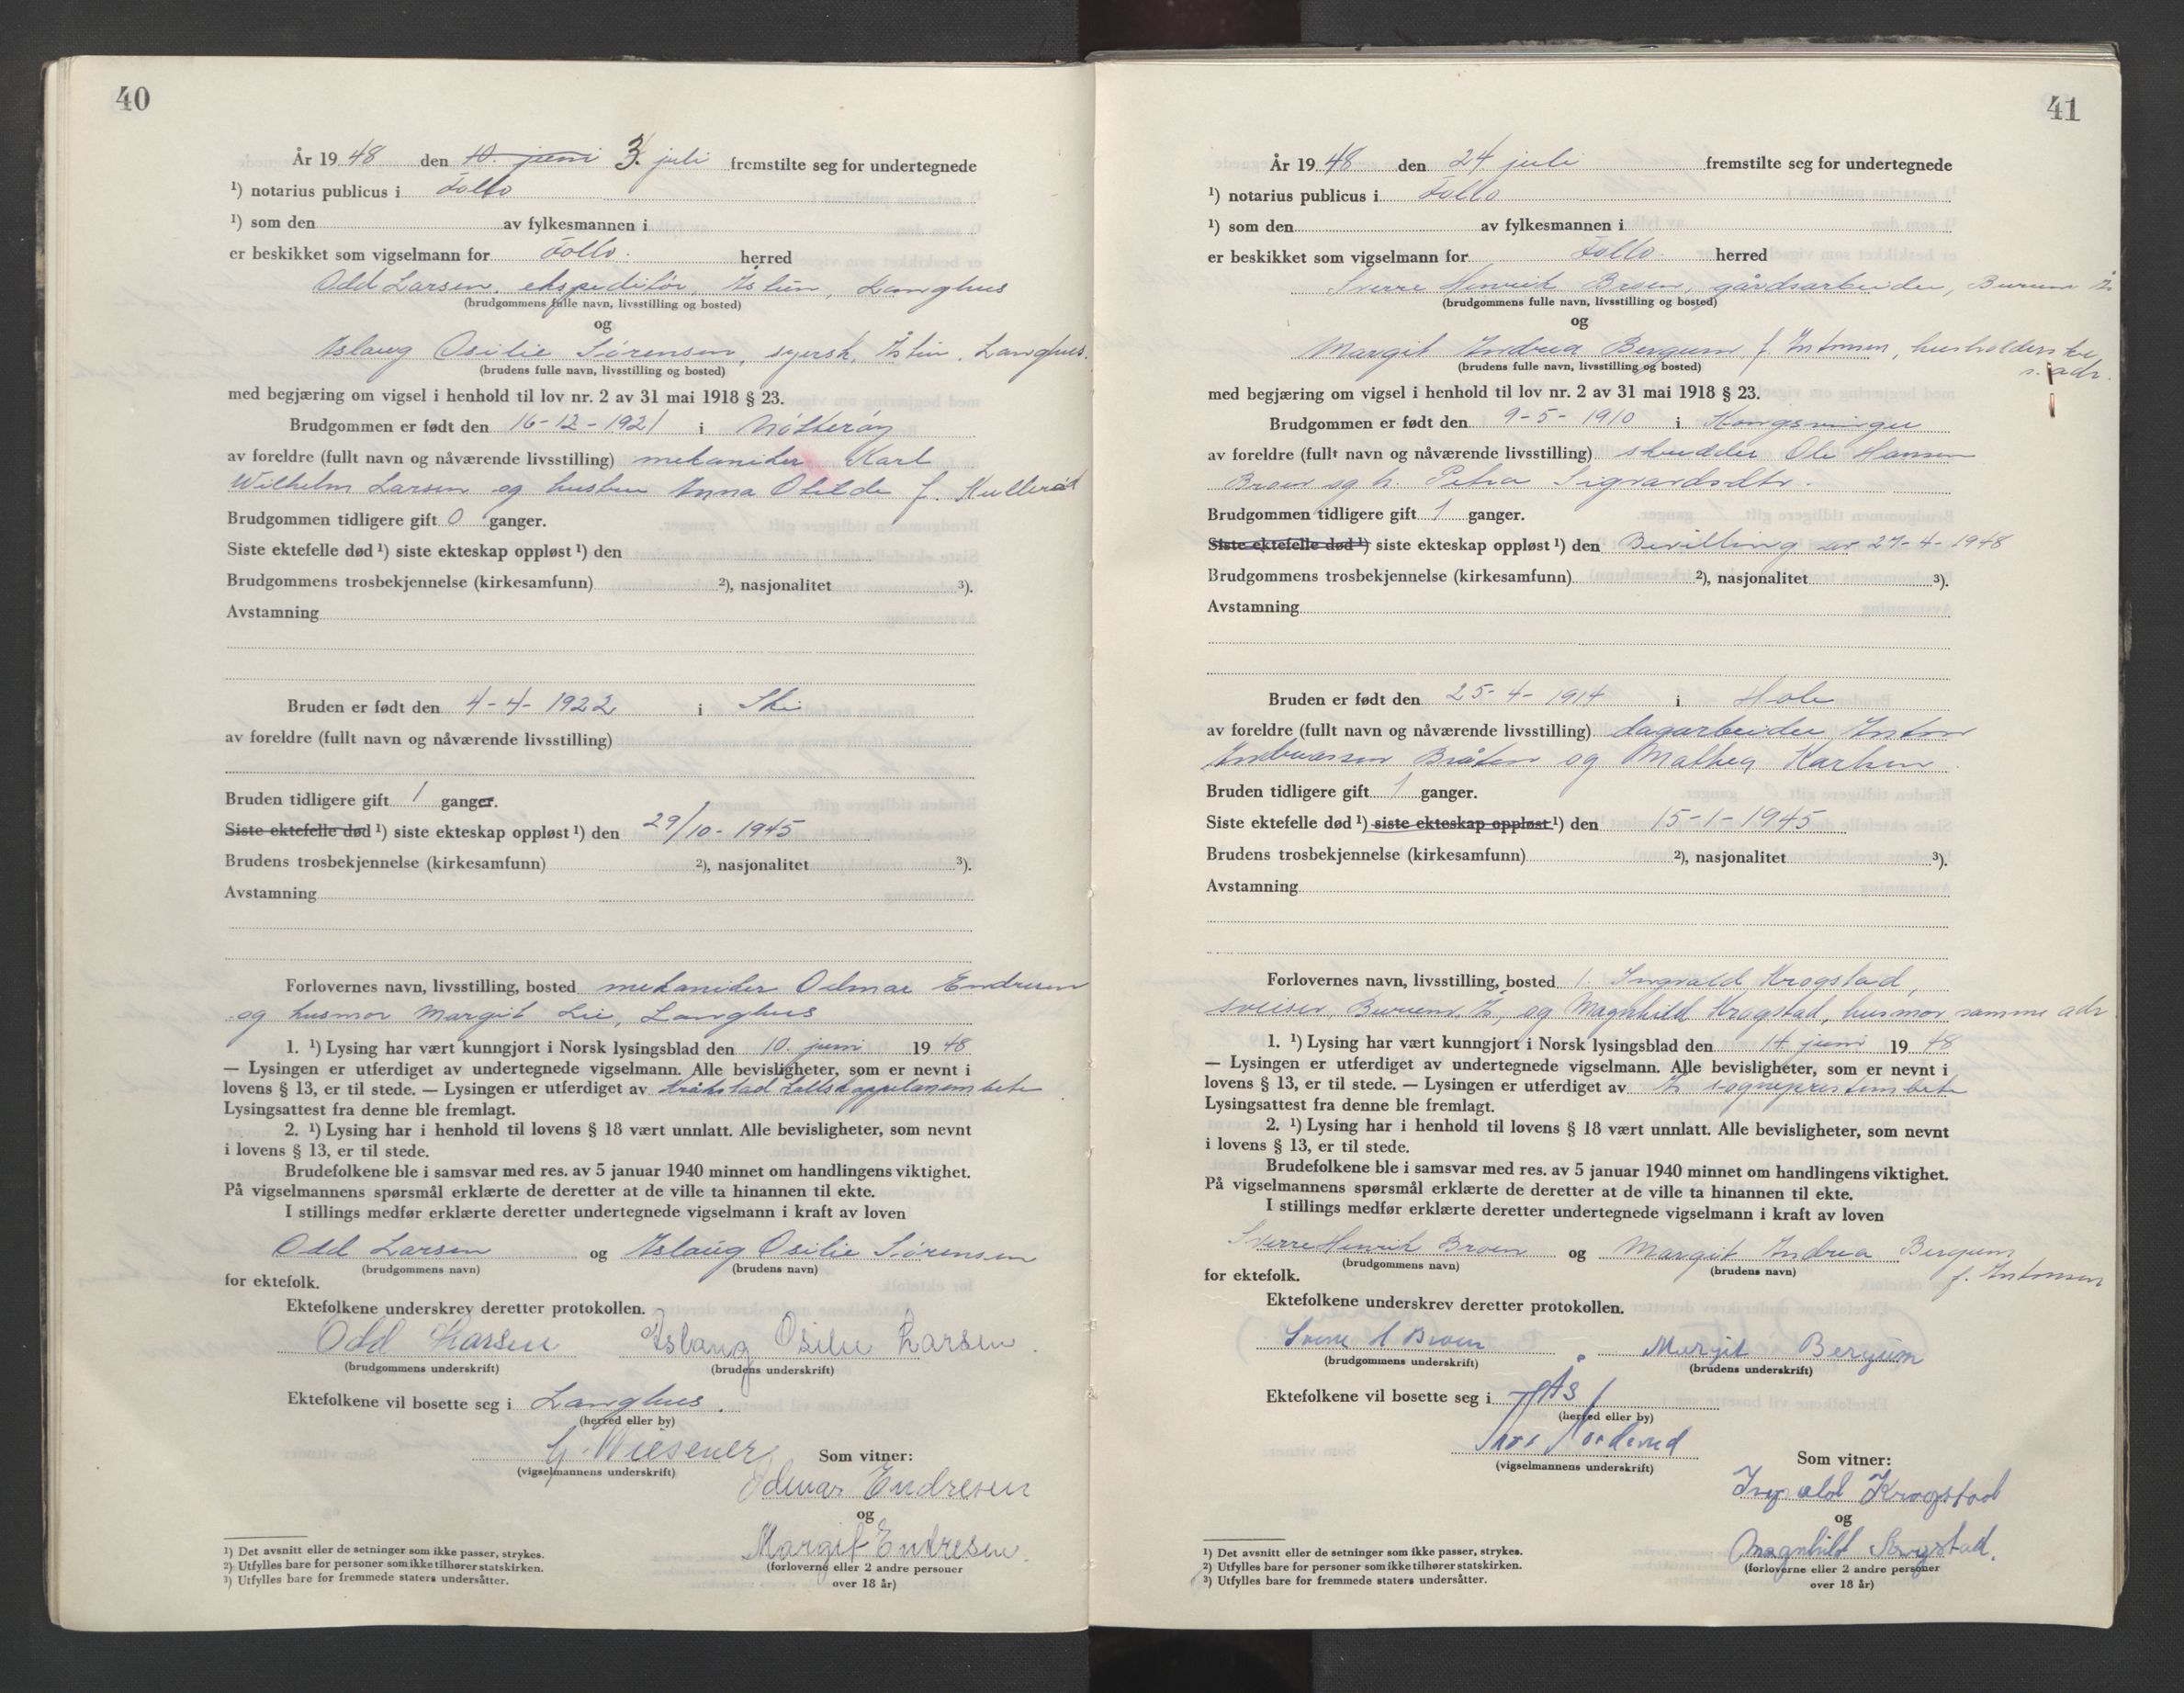 40
År 19 48 den 10. juni 3. juli fremstilte seg for undertegnede
¹) notarius publicus i Follo
¹) som den av fylkesmannen i
er beskikket som vigselmann for Follo. herred
Odd Larsen, ekspeditør, Åstun, Langhus
(brudgommens fulle navn, livsstilling og bosted)
og
Aslaug Osilie Sørensen, syersk, Åstun, Langhus.
(brudens fulle navn, livsstilling og bosted)
med begjæring om vigsel i henhold til lov nr. 2 av 31 mai 1918 § 23.
Brudgommen er født den 16-12-1921 i Nøtterøy
av foreldre (fullt navn og nåværende livsstilling) mekaniker Karl
Wilhelm Larsen og hustru Anna Otilde f.
Brudgommen tidligere gift 0 ganger.
Siste ektefelle død ¹) siste ekteskap oppløst ¹) den
Brudgommens trosbekjennelse (kirkesamfunn) ²), nasjonalitet ³).
Avstamning
Bruden er født den 4-4-1922 i Ski
av foreldre (fullt navn og nåværende livsstilling)
Bruden tidligere gift 1 ganger.
Siste ektefelle død ¹) siste ekteskap oppløst ¹) den 29/10-1945
Brudens trosbekjennelse (kirkesamfunn) ²), nasjonalitet ³).
Avstamning
Forlovernes navn, livsstilling, bosted mekaniker Odmar Endresen
og husmor Margit Lie, Langhus
1. ¹) Lysing har vært kunngjort i Norsk lysingsblad den 10. juni 19 48
— Lysingen er utferdiget av undertegnede vigselmann. Alle bevisligheter, som er nevnt i
lovens § 13, er til stede. — Lysingen er utferdiget av Kråkstad kallskappelanembete
Lysingsattest fra denne ble fremlagt.
2. ¹) Lysing har i henhold til lovens § 18 vært unnlatt. Alle bevisligheter, som nevnt
i lovens § 13, er til stede.
Brudefolkene ble i samsvar med res. av 5 januar 1940 minnet om handlingens viktighet.
På vigselmannens spørsmål erklærte de deretter at de ville ta hinannen til ekte.
I stillings medfør erklærte deretter undertegnede vigselmann i kraft av loven
Odd Larsen og Aslaug Osilie Sørensen
(brudgommens navn) (brudens navn)
for ektefolk.
Ektefolkene underskrev deretter protokollen.
Odd Larsen Aslaug Osilie Larsen.
(brudgommens underskrift) (brudens underskrift)
Ektefolkene vil bosette seg i Langhus.
(herred eller by)
G. Wiesener Som vitner:
(vigselmannens underskrift)
Odmar Endresen
og
Margit Endresen.
(forloverne eller 2 andre personer
over 18 år)
¹) Det avsnitt eller de setninger som ikke passer, strykes.
²) Utfylles bare for personer som ikke tilhører statskirken.
³) Utfylles bare for fremmede staters undersåtter.
41
År 19 48 den 24 juli fremstilte seg for undertegnede
¹) notarius publicus i Follo
¹) som den av fylkesmannen i
er beskikket som vigselmann for Follo. herred
Sverre Henrik Broen, gårdsarbeider, Burum Ås
(brudgommens fulle navn, livsstilling og bosted)
og
Margit Andrea Bergum f. Antonsen, husholderske
s. adr.
(brudens fulle navn, livsstilling og bosted)
med begjæring om vigsel i henhold til lov nr. 2 av 31 mai 1918 § 23.
Brudgommen er født den 9-5-1910 i Kongsvinger
av foreldre (fullt navn og nåværende livsstilling) skredder Ole Hansen
Broen og h. Petra Sigvardsdtr.
Brudgommen tidligere gift 1 ganger.
Siste ektefelle død ¹) siste ekteskap oppløst ¹) den Bevilling av 27-4-1948
Brudgommens trosbekjennelse (kirkesamfunn) ²), nasjonalitet ³).
Avstamning
Bruden er født den 25-4-1914 i Hole
av foreldre (fullt navn og nåværende livsstilling) dagarbeider Anton
Andreassen Bråten og Mathea Karlsen
Bruden tidligere gift 1 ganger.
Siste ektefelle død ¹) siste ekteskap oppløst ¹) den 15-1-1945
Brudens trosbekjennelse (kirkesamfunn) ²), nasjonalitet ³).
Avstamning
Forlovernes navn, livsstilling, bosted 1. Ingvald Krogstad,
sveiser, Burum, Ås, og Magnhild Krogstad, husmor, samme adr
1. ¹) Lysing har vært kunngjort i Norsk lysingsblad den 14. juni 19 48
— Lysingen er utferdiget av undertegnede vigselmann. Alle bevisligheter, som er nevnt i
lovens § 13, er til stede. — Lysingen er utferdiget av Ås sogneprestembete
Lysingsattest fra denne ble fremlagt.
2. ¹) Lysing har i henhold til lovens § 18 vært unnlatt. Alle bevisligheter, som nevnt
i lovens § 13, er til stede.
Brudefolkene ble i samsvar med res. av 5 januar 1940 minnet om handlingens viktighet.
På vigselmannens spørsmål erklærte de deretter at de ville ta hinannen til ekte.
I stillings medfør erklærte deretter undertegnede vigselmann i kraft av loven
Sverre Henrik Broen og Margit Andrea Bergum
f. Antonsen
(brudgommens navn) (brudens navn)
for ektefolk.
Ektefolkene underskrev deretter protokollen.
Sverre H Broen Margit Bergum
(brudgommens underskrift) (brudens underskrift)
Ektefolkene vil bosette seg i Ås
(herred eller by)
(vigselmannens underskrift)
Som vitner:
Ingvald Krogstad
og
Magnhild Krogstad.
(forloverne eller 2 andre personer
over 18 år)
¹) Det avsnitt eller de setninger som ikke passer, strykes.
²) Utfylles bare for personer som ikke tilhører statskirken.
³) Utfylles bare for fremmede staters undersåtter.